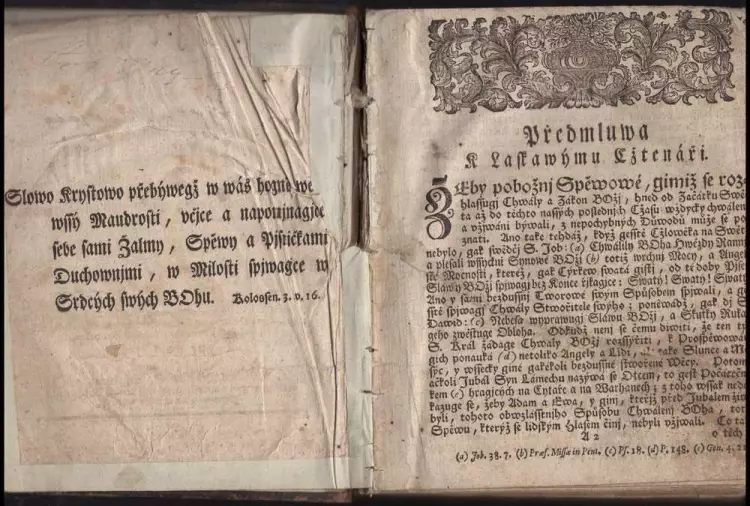 Slowo Krystowo přebýwegž w wás hogně we
wssý Maudrosti, včjce a napomjnagjce
sebe sami Žalmy, Spěwy a Pjsničkami
Duchownjmi, w Milosti spjwagjce w
Srdcých swých BOhu. Kolossen. 3. v. 16.
Předmluwa
K Laskawýmu Cžtenáři.
ŽEby pobožnj Spěwowé, gimiž se roz-
hlassugj Chwály a Zákon BOžj, hned od Začátku Swě-
ta až do těchto nassých poslednjch Cžasu wždycky chwálen
a vžjwáni býwali, z nepochybných Důwodů může se po
znati. Ano take tehdáž, když gesstě Cžlowěka na Swětě
nebylo, gak swědčj S. Job: (a) Chwálily BOha Hwězdy Rannj
a plesali wssyckni Synowé BOžj (b) totiž wrchnj Mocy, a Angel
ské Mocnosti, kteréž, gak Cýrkew swatá gistj, od té doby Pjseň
Sláwy BOžj spjwagj bez Konce řjkagjce: Swatý! Swatý! Swatý
Ano y sami bezdussnj Tworowé swým Spůsobem spjwali, a ge
sstě spjwagj Chwály Stwořitele swýho; poněwadž, gak dj S.
Dawid: (c) Nebesa wyprawugj Sláwu BOžj, a Skutky Ruka
geho zwěstuge Obloha. Odkudž nenj se čemu diwiti, že ten t
S. Král žádage Chwály BOžj rozssýřiti, k Prospěwowa
gich ponauká (d) netoliko Angely a Lidi, ale take Slunce a M
sýc, y wssecky giné gakékoli bezdussné stwořené Wěcy. Potom
ačkoli Jubál Syn Lámechu nazýwá se Otcem, to gest Počátečn
kem (e) hragjcých na Cytaře a na Warhanech; z toho wssak nedo
kazuge se, žeby Adam a Ewa, y ginj, kteřjž před Jubalem žiw
byli, tohoto obwzlásstnjho Spůsobu Chwálenj BOha, tot
Spěwu, kterýž se lidským Hlasem činj, nebyli vžjwali. Co ta
A 2 o těch
(a) Job. 38. 7. (b) Præf. Missæ in Pent. (c) Ps. 18. (d) P. 148. (e) Gen. 4. 21